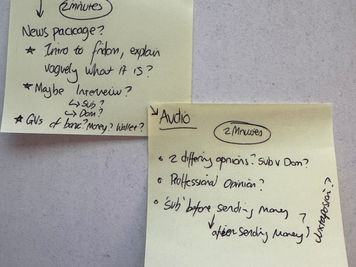 2 minutes
News package?
* Intro to findom, explain
vaguely what it is?
* Maybe Interview?
↳ Sub?
↳ Dom?
* GVs of bank? Money? Wallet?
↘ Audio
2 Minutes
• 2 differing opinions? Sub v Dom?
• Proffessional Opinion?
• 'Sub' before sending money
↓ after sending money?
Juxtaposition?